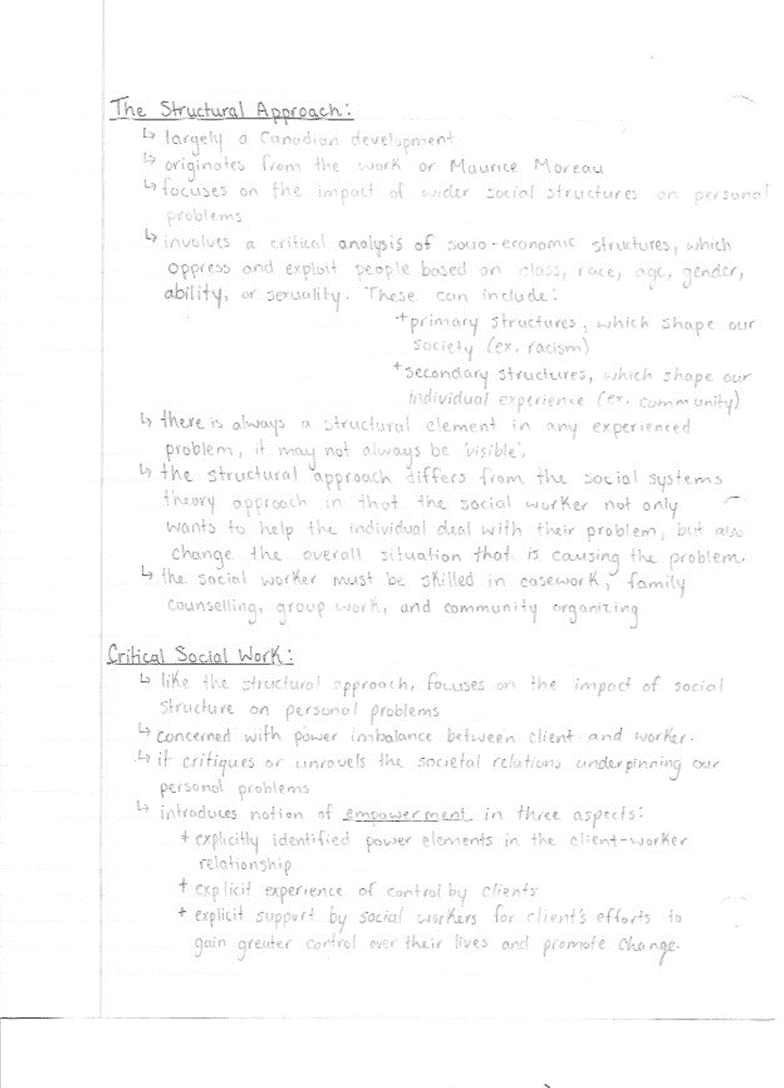 The Structural Approach:
↳ largely a Canadian development
↳ originates from the work or Maurice Moreau
↳ focuses on the impact of wider social structures on personal
problems
↳ involves a critical analysis of socio-economic structures, which
oppress and exploit people based on class, race, age, gender,
ability, or sexuality. These can include:
+ primary structures, which shape our
society (ex. racism)
+ secondary structures, which shape our
individual experience (ex. community)
↳ there is always a structural element in any experienced
problem, it may not always be 'visible'.
↳ the structural approach differs from the social systems
theory approach in that the social worker not only
wants to help the individual deal with their problem, but also
change the overall situation that is causing the problem.
↳ the social worker must be skilled in casework, family
counselling, group work, and community organizing
Critical Social Work:
↳ like the structural approach, focuses on the impact of social
structure on personal problems
↳ concerned with power imbalance between client and worker.
↳ it critiques or unravels the societal relations underpinning our
personal problems
↳ introduces notion of empowerment in three aspects:
+ explicitly identified power elements in the client-worker
relationship
+ explicit experience of control by clients
+ explicit support by social workers for client's efforts to
gain greater control over their lives and promote change.